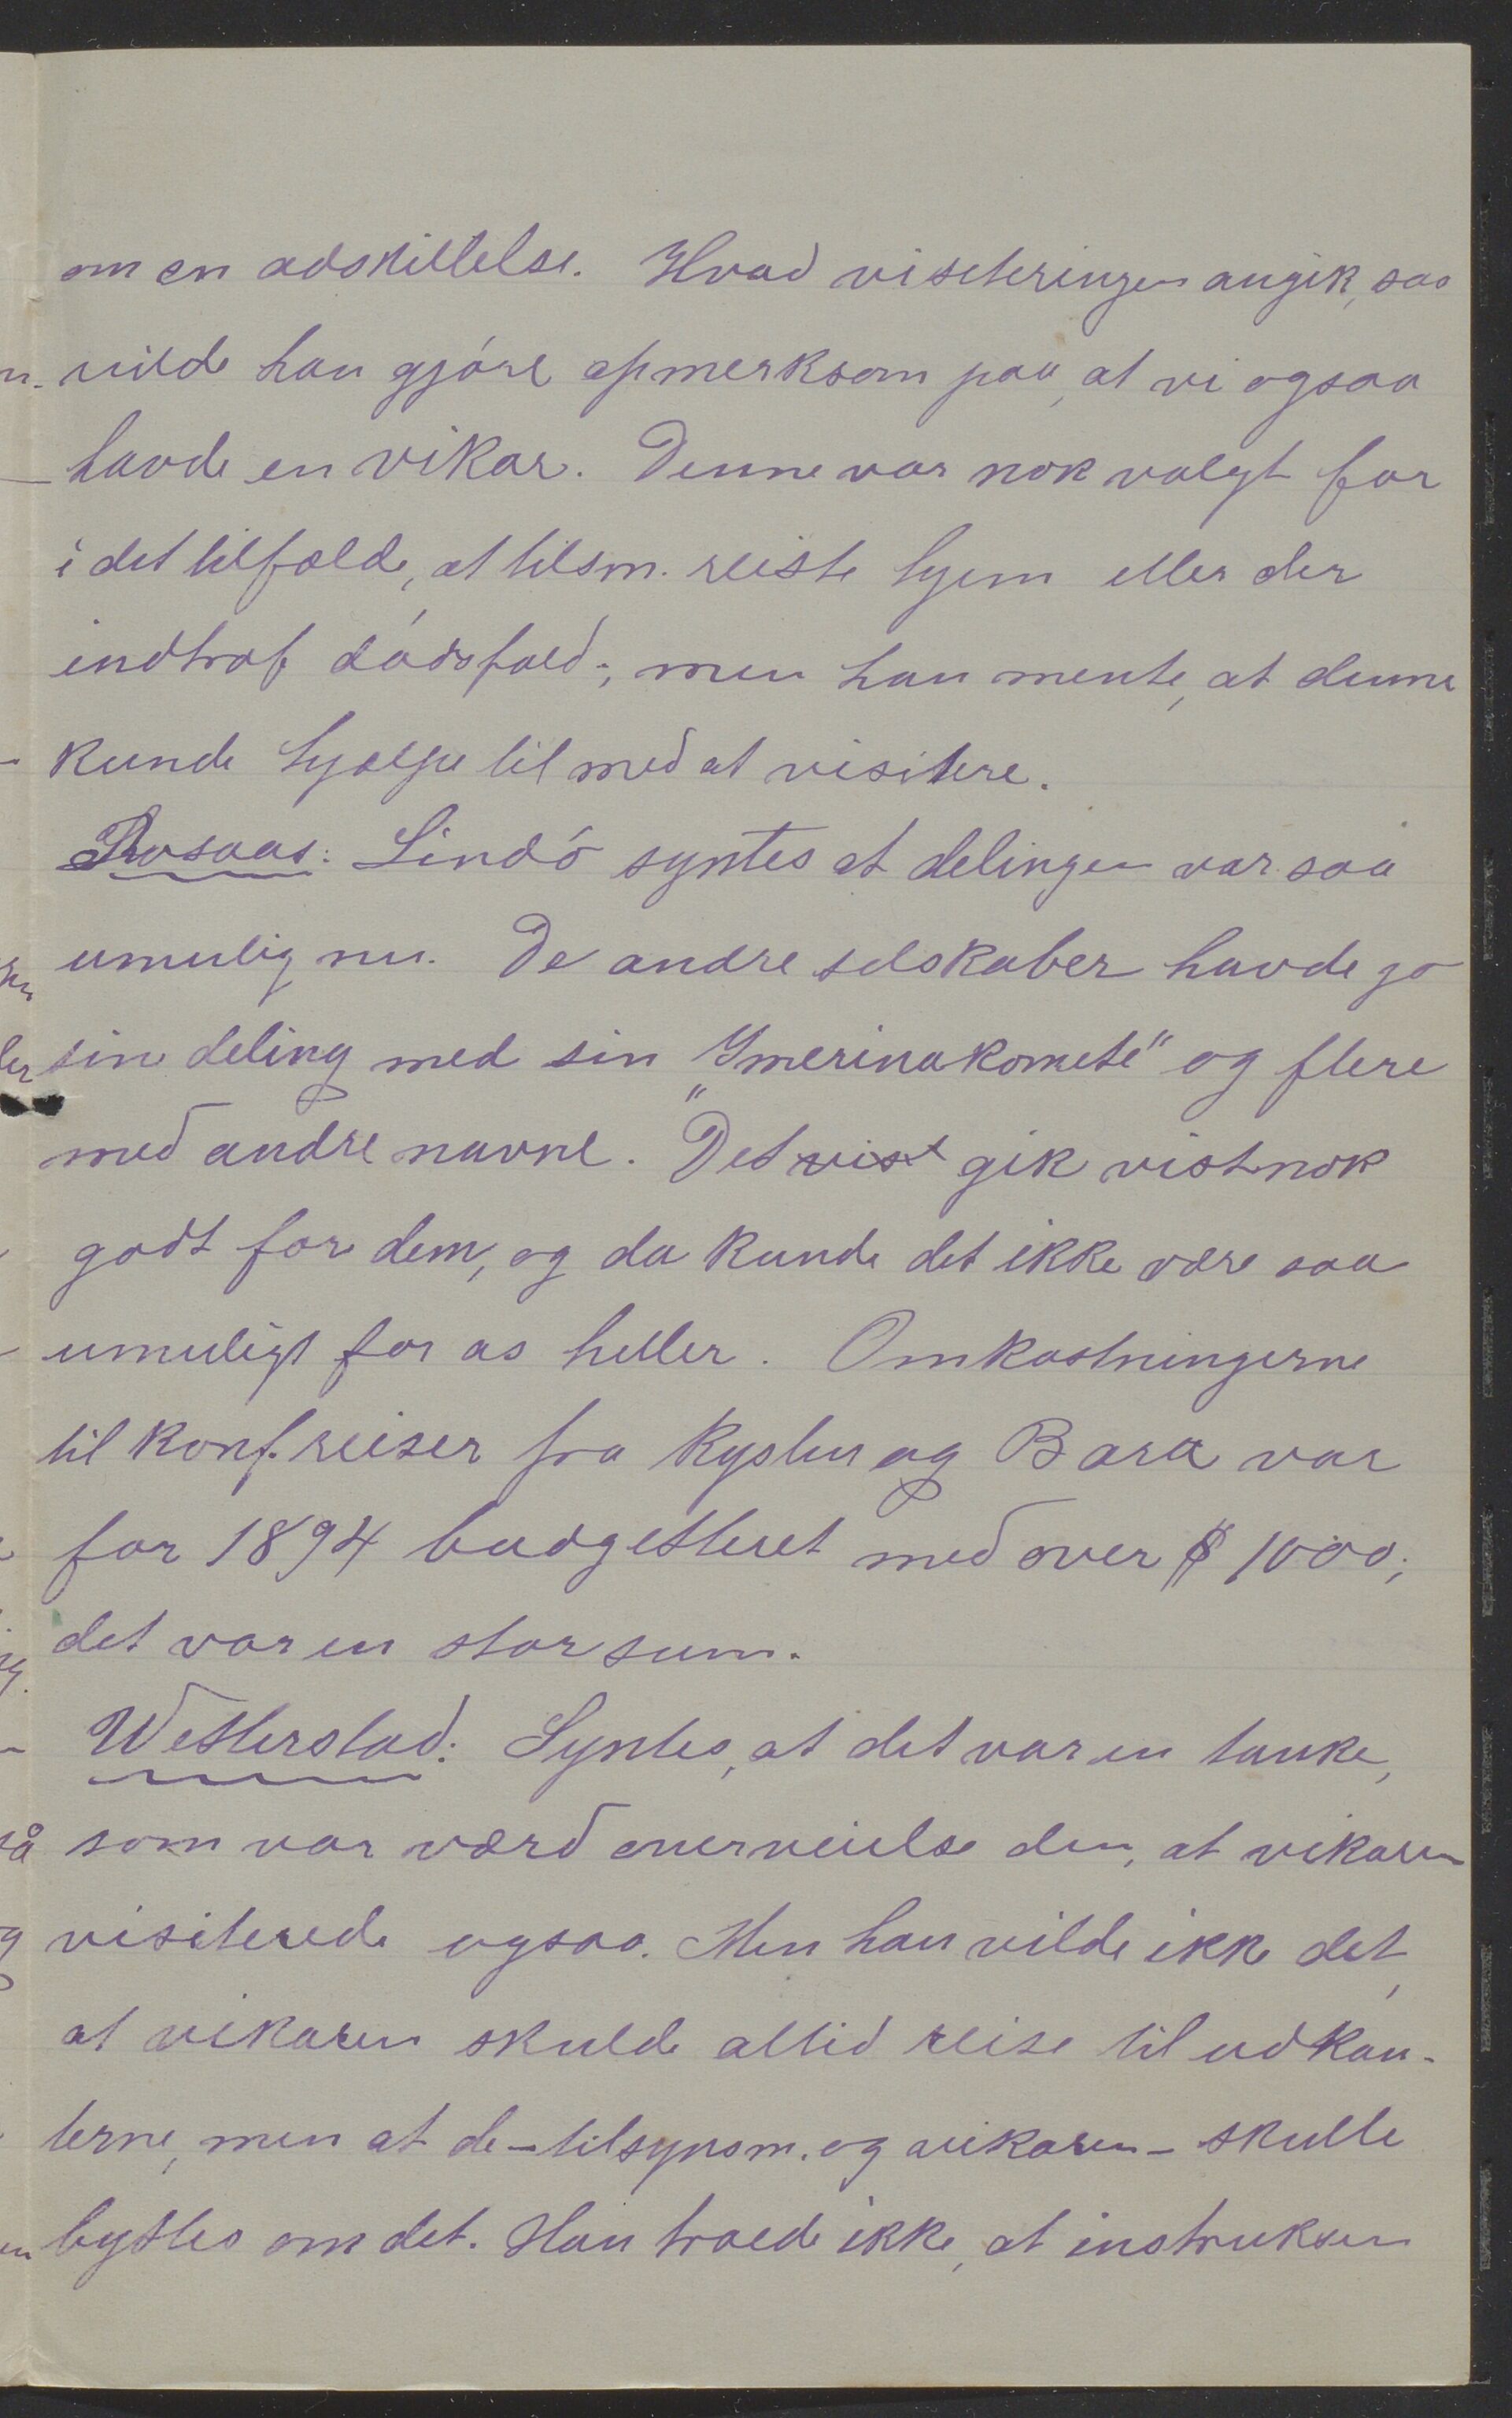 om en adskillelse. Hvad visiteringen angik, saa
vilde han gjóre opmerksom paa, at vi ogsaa
havde en vikar. Denne var nok valgt for
i det tilfælde, at tilsm. reiste hjem eller der
indtraf dódsfald; men han mente, at denne
kunde hjælpe til med at visitere.
Rosaas: Lindó syntes at delingen var saa
umulig nu. De andre selskaber havde jo
sin deling med sin "Ymerinakomete" og flere
med andre navne. Det vist gik vistnok
godt for dem, og da kunde det ikke være saa
umuligt for os heller. Omkostningerne
til konf.reiser fra kysten og Bara var
for 1894 budgetteret med over $ 1000;
det var en stor sum.
Wetterstad: Syntes, at det var en tanke,
som var værd overveielse den, at vikaren
visiterede ogsaa. Men han vilde ikke det,
at vikaren skulde altid reise til udkan-
terne, men at de - tilsynsm. og vikaren - skulle
byttes om det. Han troede ikke, at instruksen